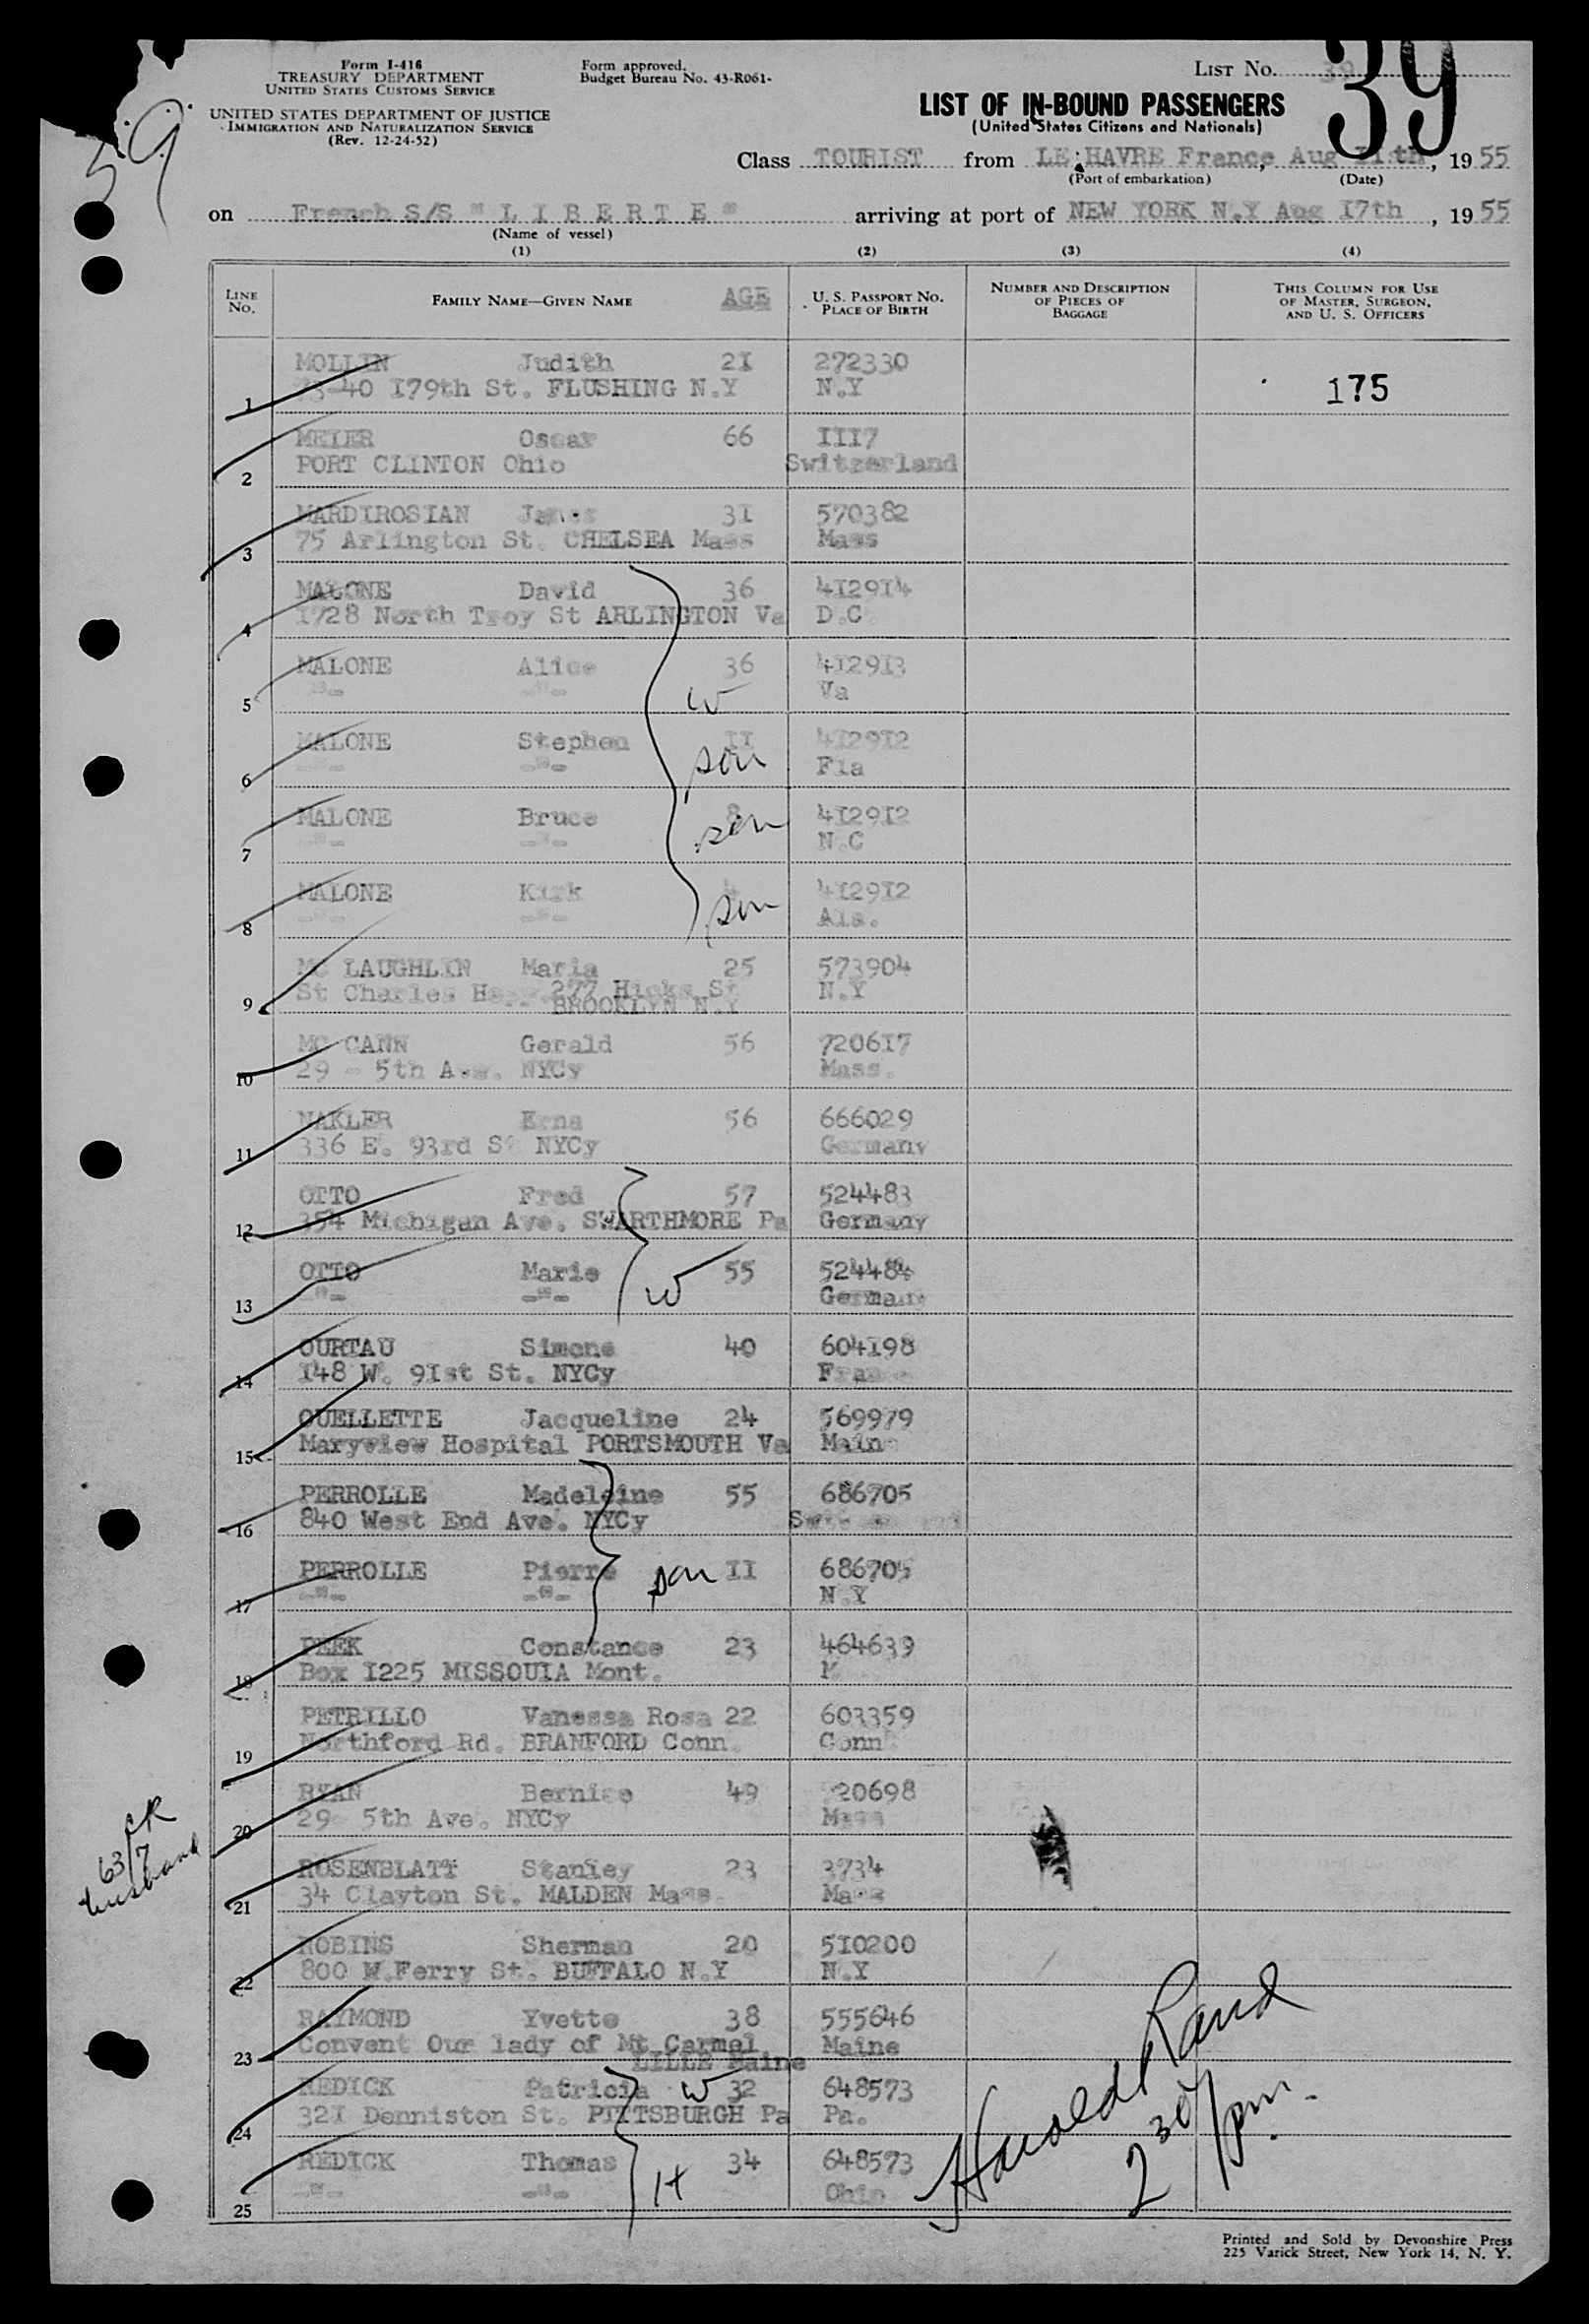 Form I-416
TREASURY DEPARTMENT
UNITED STATES CUSTOMS SERVICE
UNITED STATES DEPARTMENT OF JUSTICE
IMMIGRATION AND NATURALIZATION SERVICE
(Rev. 12-24-52)
Form approved.
Budget Bureau No. 43-R061-
LIST NO. 39
39
59
LIST OF IN-BOUND PASSENGERS
(United States Citizens and Nationals)
Class TOURIST from LE HAVRE France, Aug 11th, 1955
(Port of embarkation) (Date)
on French S/S "LIBERTE" arriving at port of NEW YORK N.Y Aug 17th, 1955
(Name of vessel)
(1) (2) (3) (4)
LINE NO. FAMILY NAME—GIVEN NAME AGE U. S. PASSPORT NO. PLACE OF BIRTH NUMBER AND DESCRIPTION OF PIECES OF BAGGAGE THIS COLUMN FOR USE OF MASTER, SURGEON, AND U. S. OFFICERS
MOLLIN Judith 21 272330
1 73-40 179th St. FLUSHING N.Y N.Y 175
MEIER Oscar 66 1117
2 PORT CLINTON Ohio Switzerland
MARDIROSIAN James 31 570382
3 75 Arlington St. CHELSEA Mass Mass
MALONE David 36 412914
4 1728 North Troy St ARLINGTON Va D.C
MALONE Alice 36 412913
5 -"- -"- w Va
MALONE Stephen 11 412912
6 -"- -"- son Fla
MALONE Bruce 8 412912
7 -"- -"- son N.C
MALONE Kirk 4 412912
8 -"- -"- son Ala.
MC LAUGHLIN Maria 25 573904
9 St Charles 277 Hicks St N.Y
BROOKLYN N.Y
MC CANN Gerald 56 720617
10 29 - 5th Ave. NYCy Mass.
NAKLER Erna 56 666029
11 336 E. 93rd St NYCy Germany
OTTO Fred 57 524483
12 354 Michigan Ave. SWARTHMORE Pa Germany
OTTO Marie 55 524484
13 -"- -"- w Germany
OURTAU Simone 40 604198
14 148 W. 91st St. NYCy France
OUELLETTE Jacqueline 24 569979
15 Maryview Hospital PORTSMOUTH Va Maine
PERROLLE Madeleine 55 686705
16 840 West End Ave. NYCy
PERROLLE Pierre son 11 686705
17 -"- -"- N.Y
PEEK Constance 23 464639
18 Box 1225 MISSOUIA Mont. M
PETRILLO Vanessa Rosa 22 603359
19 Northford Rd. BRANFORD Conn. Conn
RYAN Bernice 49 20698
20 29- 5th Ave. NYCy Mass
CR
63/7
husband
ROSENBLATT Stanley 23 3734
21 34 Clayton St. MALDEN Mass. Mass
ROBINS Sherman 20 510200
22 800 W.Ferry St. BUFFALO N.Y N.Y
RAYMOND Yvette 38 555646
23 Convent Our lady of Mt Carmel Maine
LILLE Maine
REDICK Patricia w 32 648573
24 321 Denniston St. PITTSBURGH Pa Pa.
REDICK Thomas 34 648573
25 -"- -"- H Ohio
Harold Rand
2 30/pm.
Printed and Sold by Devonshire Press
225 Varick Street, New York 14, N. Y.